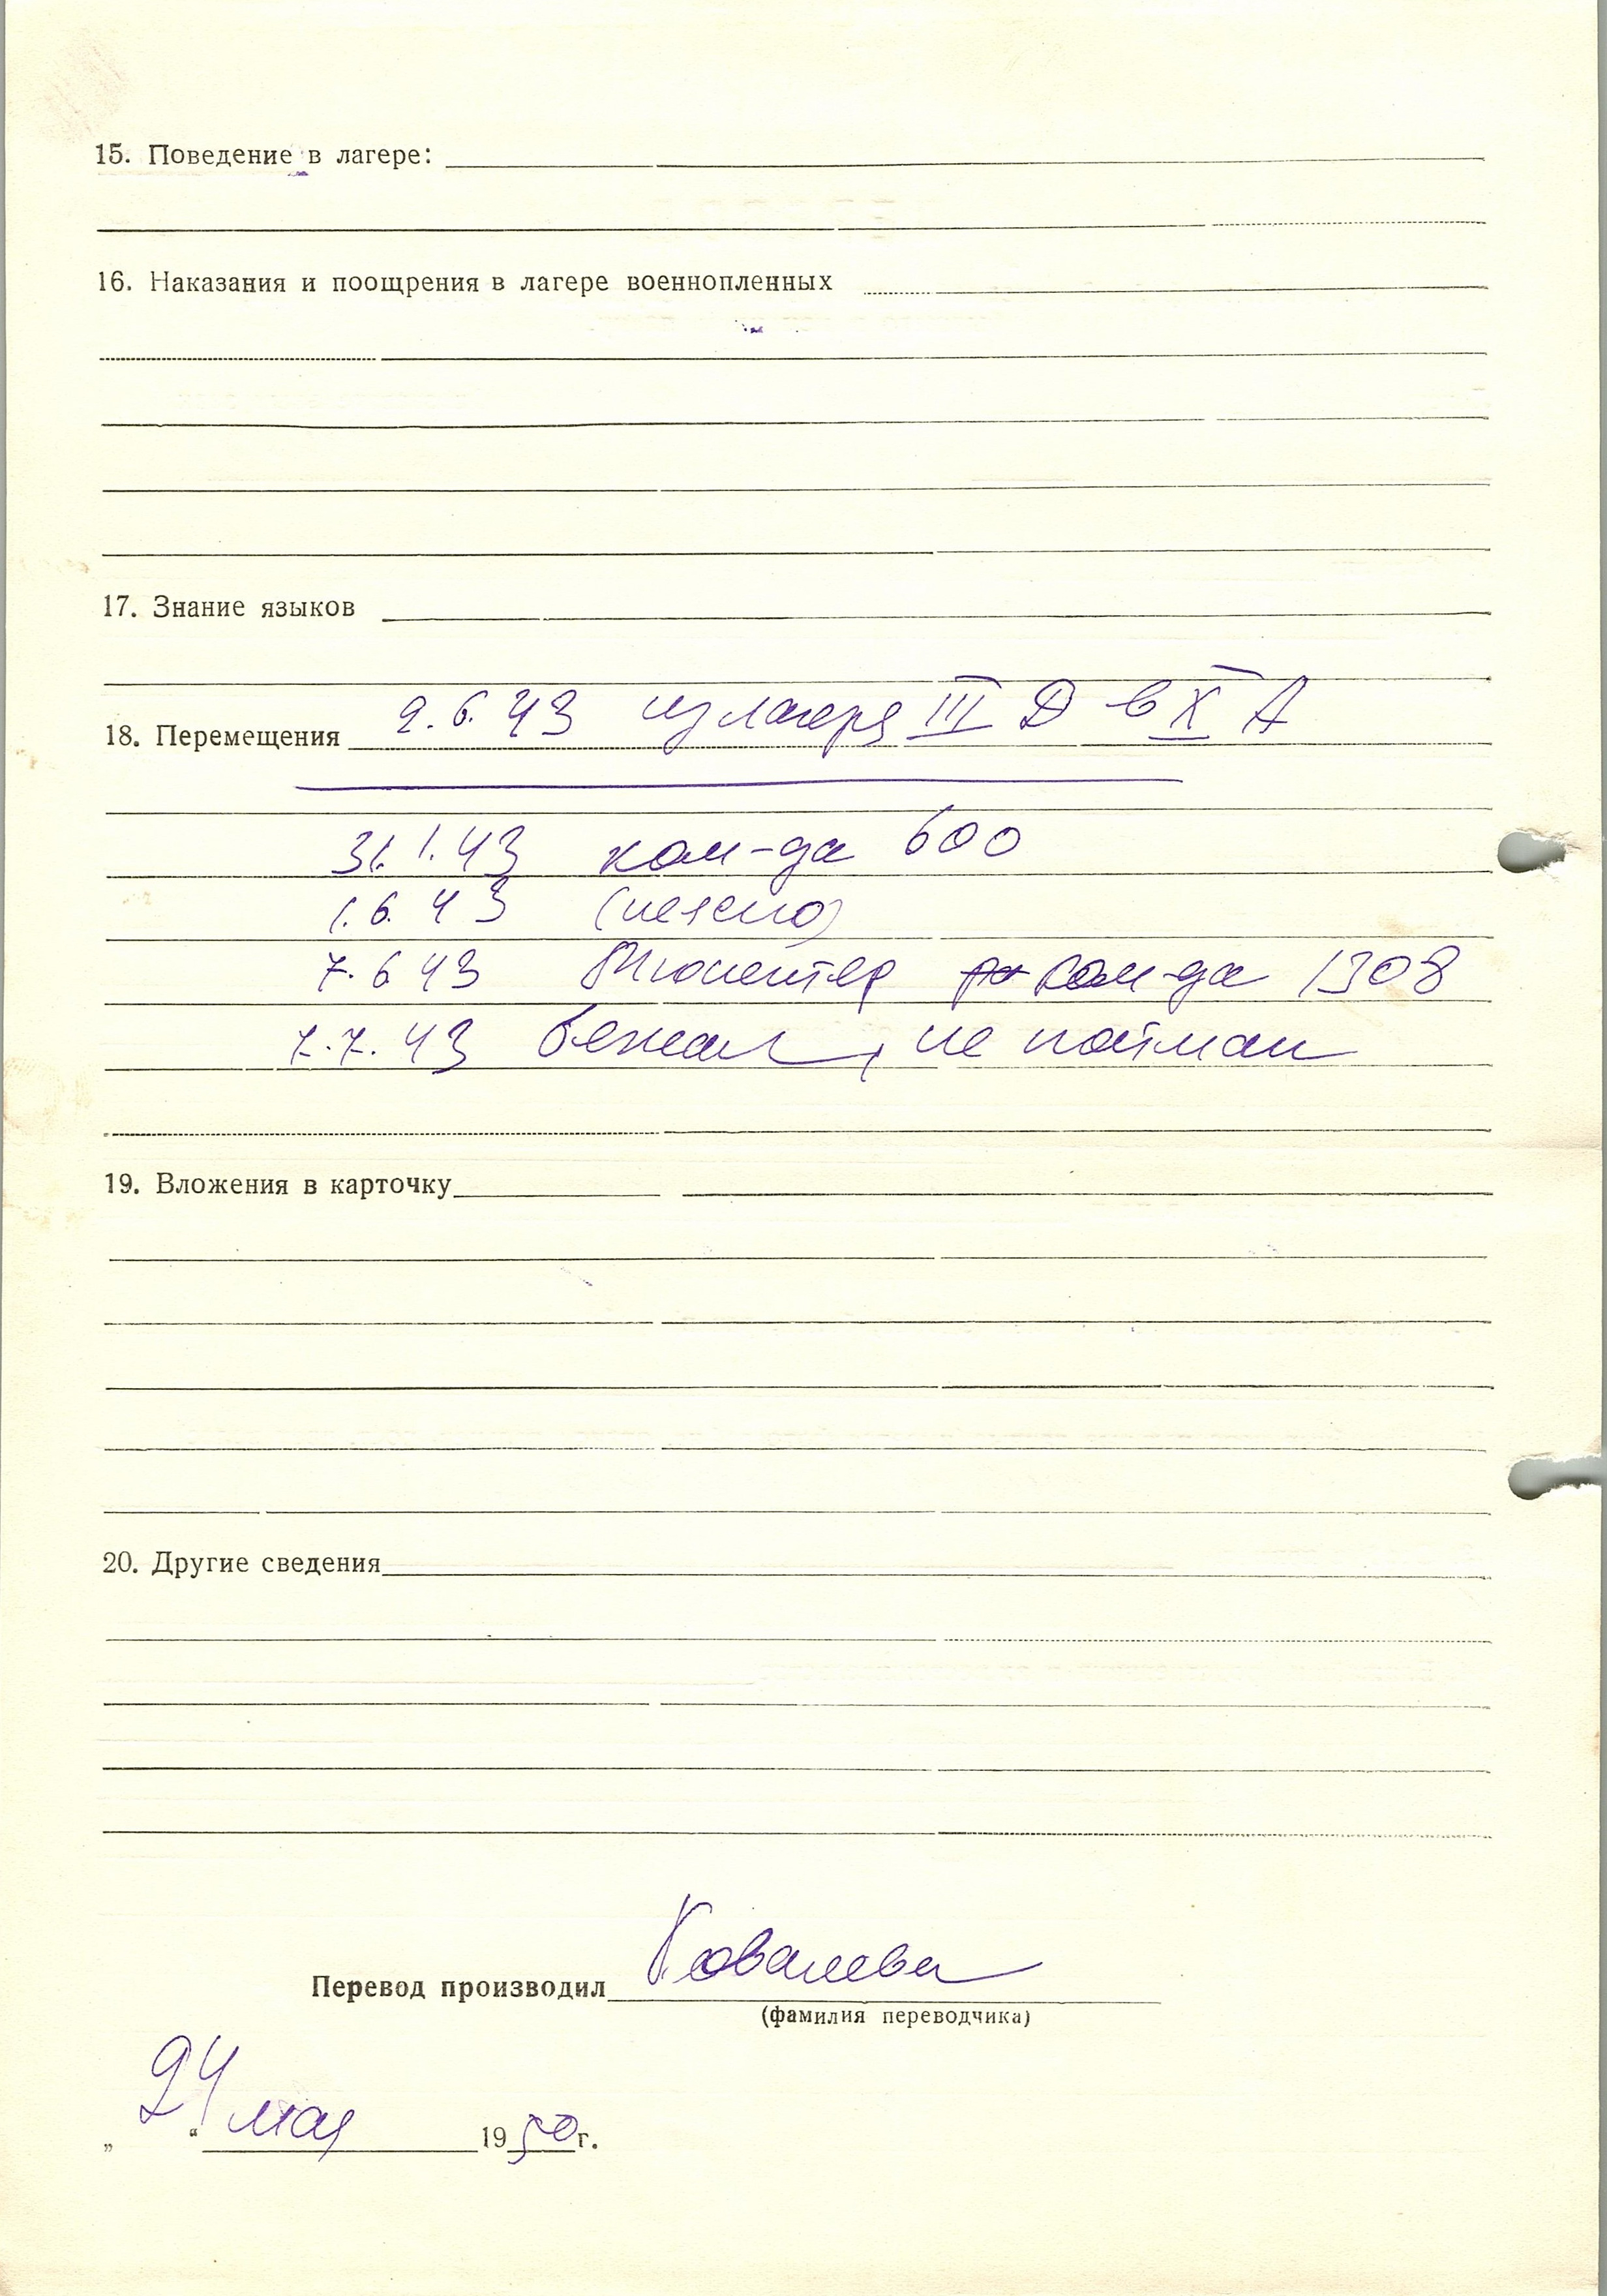 15. Поведение в лагере:
16. Наказания и поощрения в лагере военнопленных
17. Знание языков
18. Перемещения 2.6.43 из лагеря III Д в X А
31.1.43 ком-да 600
1.6.43 (неясно)
7.6 43 ком-да 1308
7.7.43 бежал, не пойман
19. Вложения в карточку
20. Другие сведения
Перевод производил Ковалева
(фамилия переводчика)
„24“ мая 1950 г.